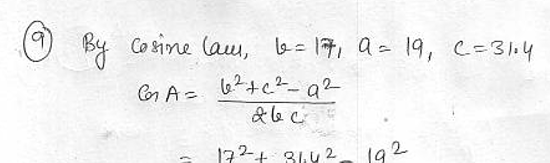 9 By cosine law, b = 17, a = 19, c = 31.4
Cos A = b² + c² - a²
2bc
= 17² + 31.4² - 19²